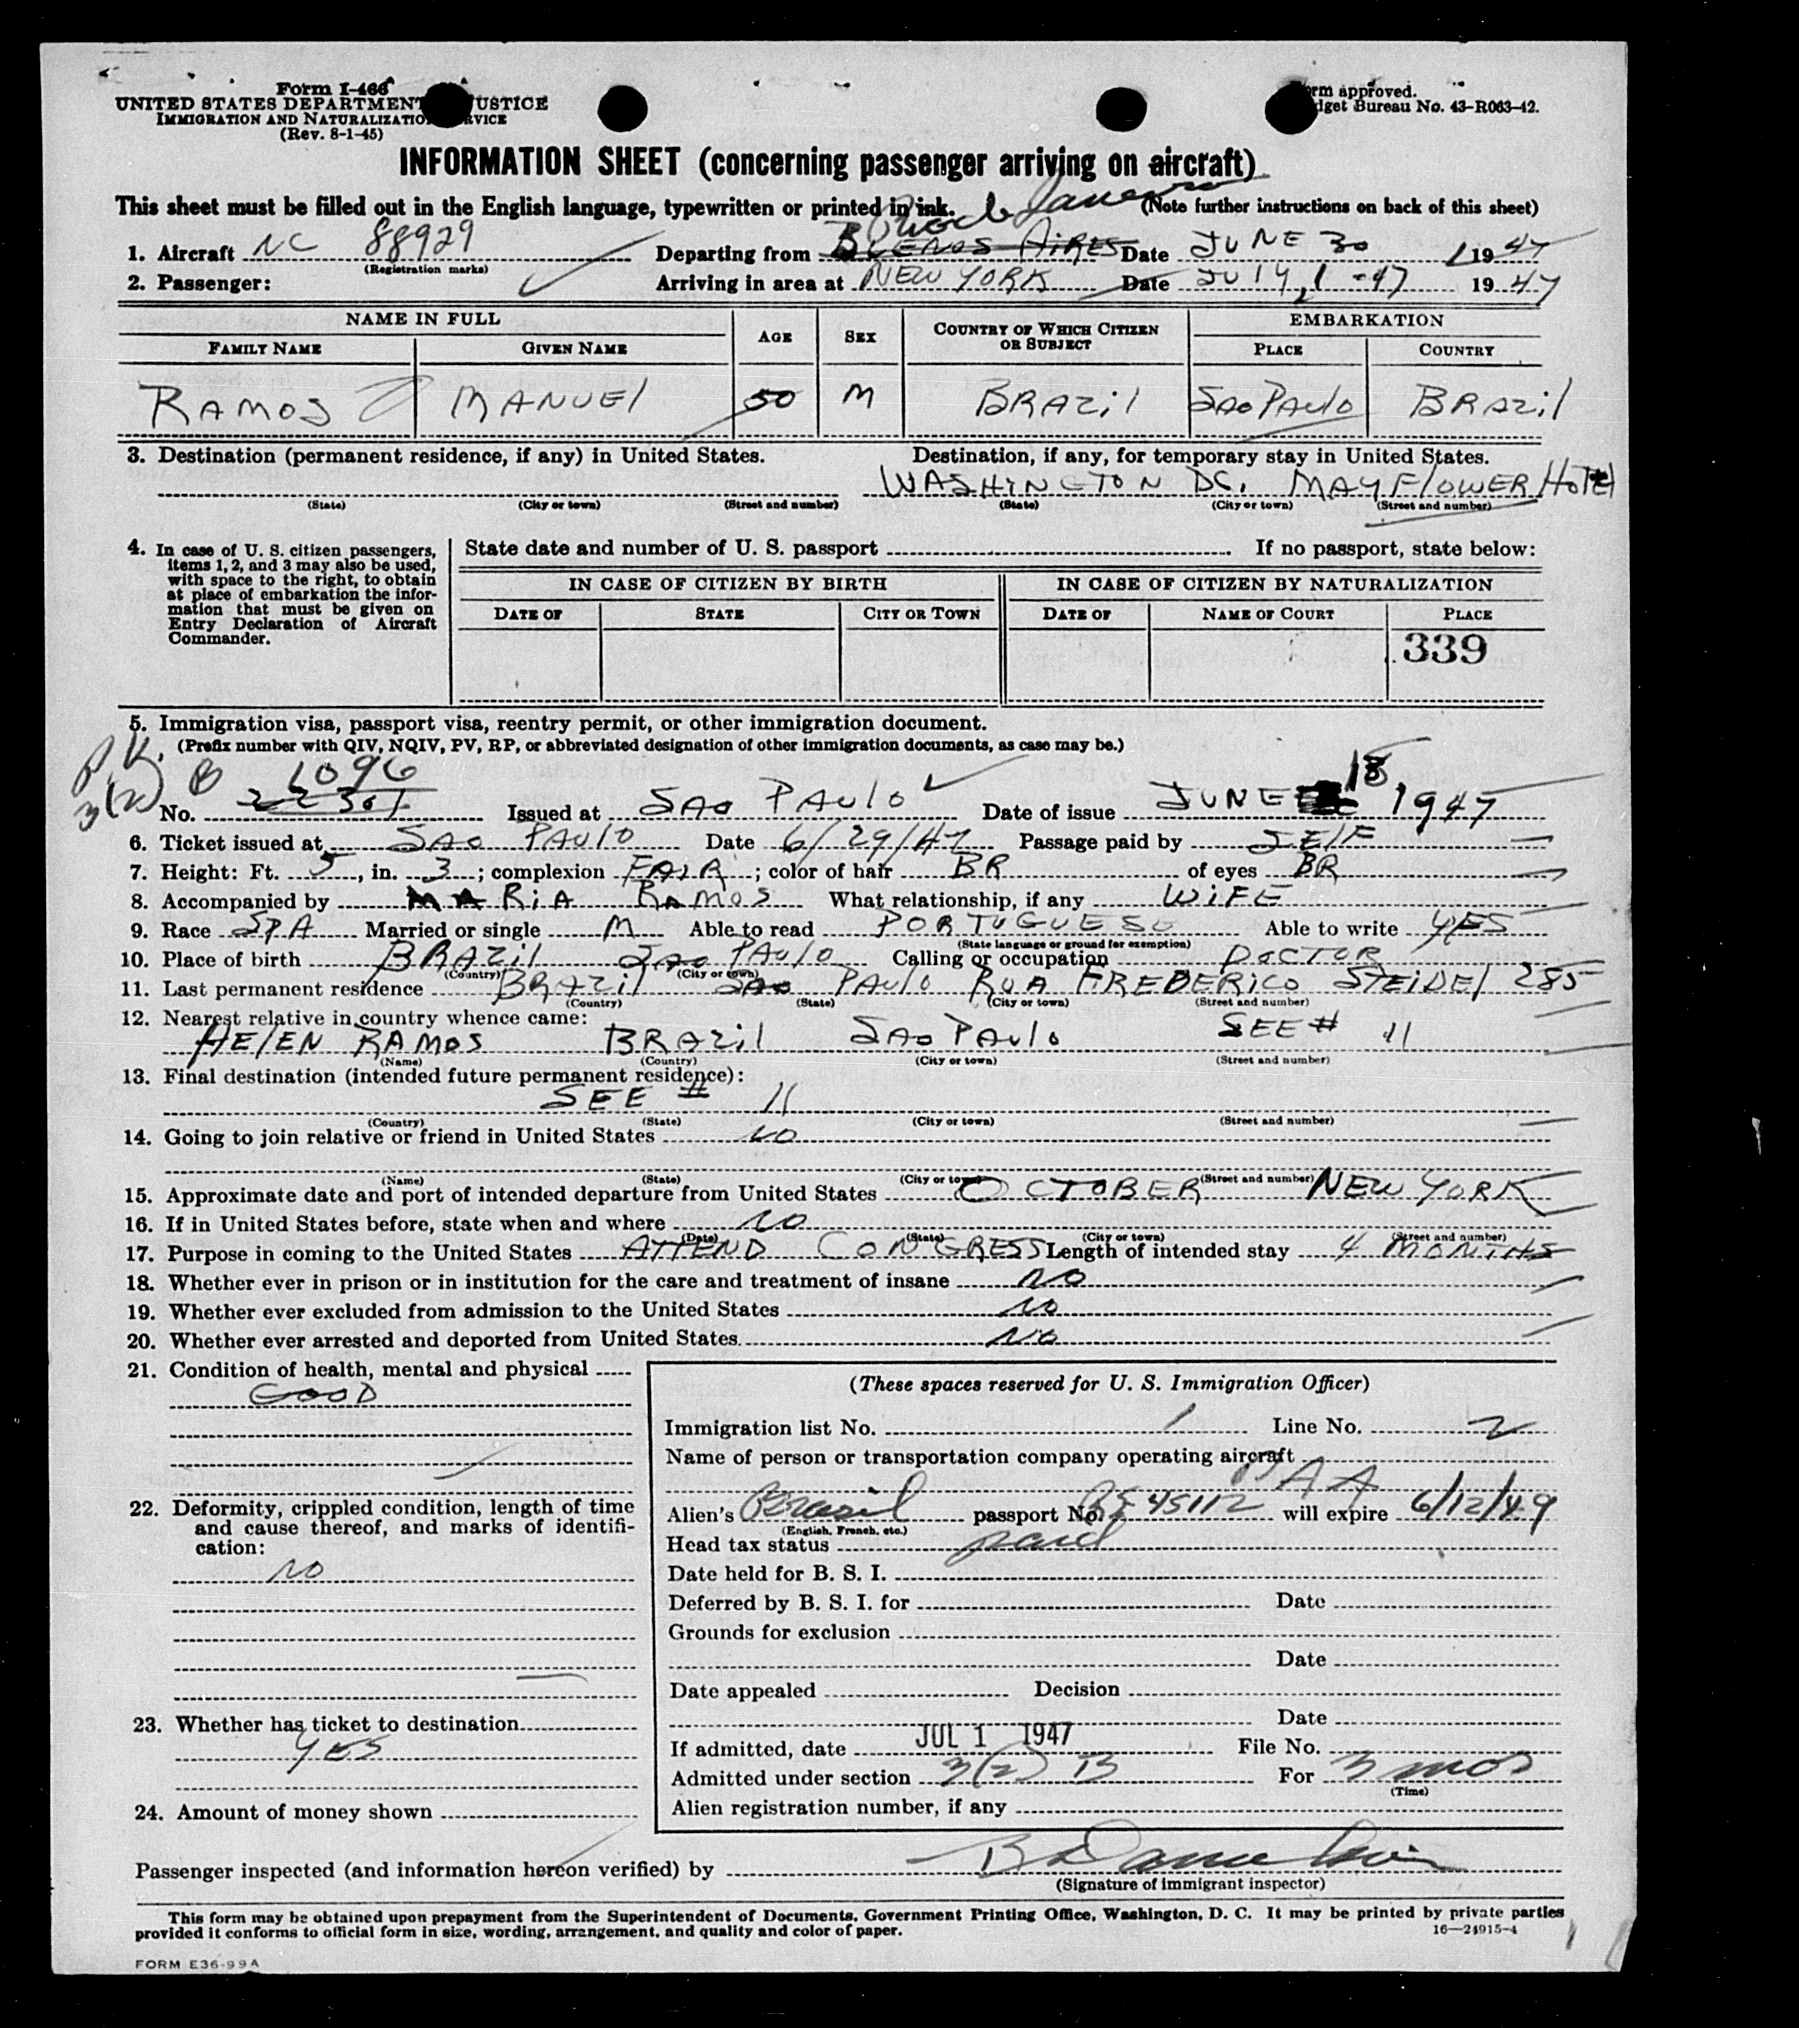 Form I-466
UNITED STATES DEPARTMENT JUSTICE
IMMIGRATION AND NATURALIZATION SERVICE
(Rev. 8-1-45)
Form approved.
Budget Bureau No. 43-R063-42.
INFORMATION SHEET (concerning passenger arriving on aircraft)
This sheet must be filled out in the English language, typewritten or printed in ink. (Note further instructions on back of this sheet)
Rio de Janeiro
1. Aircraft NC 88929 Departing from BUENOS AIRES Date JUNE 30 1947
(Registration marks)
2. Passenger: Arriving in area at NEW YORK Date JULY 1-47 1947
NAME IN FULL AGE SEX COUNTRY OF WHICH CITIZEN OR SUBJECT EMBARKATION
FAMILY NAME GIVEN NAME PLACE COUNTRY
RAMOS MANUEL 50 M BRAZIL SAO PAULO BRAZIL
3. Destination (permanent residence, if any) in United States. Destination, if any, for temporary stay in United States.
WASHINGTON DC. MAYFLOWER HOTEL
(State) (City or town) (Street and number) (State) (City or town) (Street and number)
4. In case of U. S. citizen passengers, items 1, 2, and 3 may also be used, with space to the right, to obtain at place of embarkation the information that must be given on Entry Declaration of Aircraft Commander.
State date and number of U. S. passport If no passport, state below:
IN CASE OF CITIZEN BY BIRTH IN CASE OF CITIZEN BY NATURALIZATION
DATE OF STATE CITY OR TOWN DATE OF NAME OF COURT PLACE
339
5. Immigration visa, passport visa, reentry permit, or other immigration document.
(Prefix number with QIV, NQIV, PV, RP, or abbreviated designation of other immigration documents, as case may be.)
P.V. 3(2) B 1096
18
No. 22301 Issued at SAO PAULO Date of issue JUNE 1947
6. Ticket issued at SAO PAULO Date 6/29/47 Passage paid by SELF
7. Height: Ft. 5, in. 3; complexion FAIR; color of hair BR of eyes BR
8. Accompanied by MARIA RAMOS What relationship, if any WIFE
9. Race SPA Married or single M Able to read PORTUGUESE Able to write YES
(State language or ground for exemption)
10. Place of birth BRAZIL SAO PAULO Calling or occupation DOCTOR
(Country) (City or town)
11. Last permanent residence BRAZIL SAO PAULO RUA FREDERICO STEIDEL 285
(Country) (State) (City or town) (Street and number)
12. Nearest relative in country whence came:
HELEN RAMOS BRAZIL SAO PAULO SEE # 11
(Name) (Country) (City or town) (Street and number)
13. Final destination (intended future permanent residence):
SEE # 11
(Country) (State) (City or town) (Street and number)
14. Going to join relative or friend in United States NO
(Name) (State) (City or town) (Street and number)
15. Approximate date and port of intended departure from United States OCTOBER NEW YORK
16. If in United States before, state when and where NO
(Date) (State) (City or town) (Street and number)
17. Purpose in coming to the United States ATTEND CONGRESS Length of intended stay 4 MONTHS
18. Whether ever in prison or in institution for the care and treatment of insane NO
19. Whether ever excluded from admission to the United States NO
20. Whether ever arrested and deported from United States. NO
21. Condition of health, mental and physical
GOOD
22. Deformity, crippled condition, length of time and cause thereof, and marks of identification:
NO
23. Whether has ticket to destination
YES
24. Amount of money shown
(These spaces reserved for U. S. Immigration Officer)
Immigration list No. 1 Line No. 2
Name of person or transportation company operating aircraft
PAA
Alien's Brazil passport No. 45112 will expire 6/12/49
(English, French, etc.)
Head tax status paid
Date held for B. S. I.
Deferred by B. S. I. for Date
Grounds for exclusion
Date
Date appealed Decision
Date
If admitted, date JUL 1 1947 File No.
Admitted under section 3(2) B For 3 mos
(Time)
Alien registration number, if any
Passenger inspected (and information hereon verified) by
(Signature of immigrant inspector)
This form may be obtained upon prepayment from the Superintendent of Documents, Government Printing Office, Washington, D. C. It may be printed by private parties
provided it conforms to official form in size, wording, arrangement, and quality and color of paper. 16—24915-4
FORM E36-99A